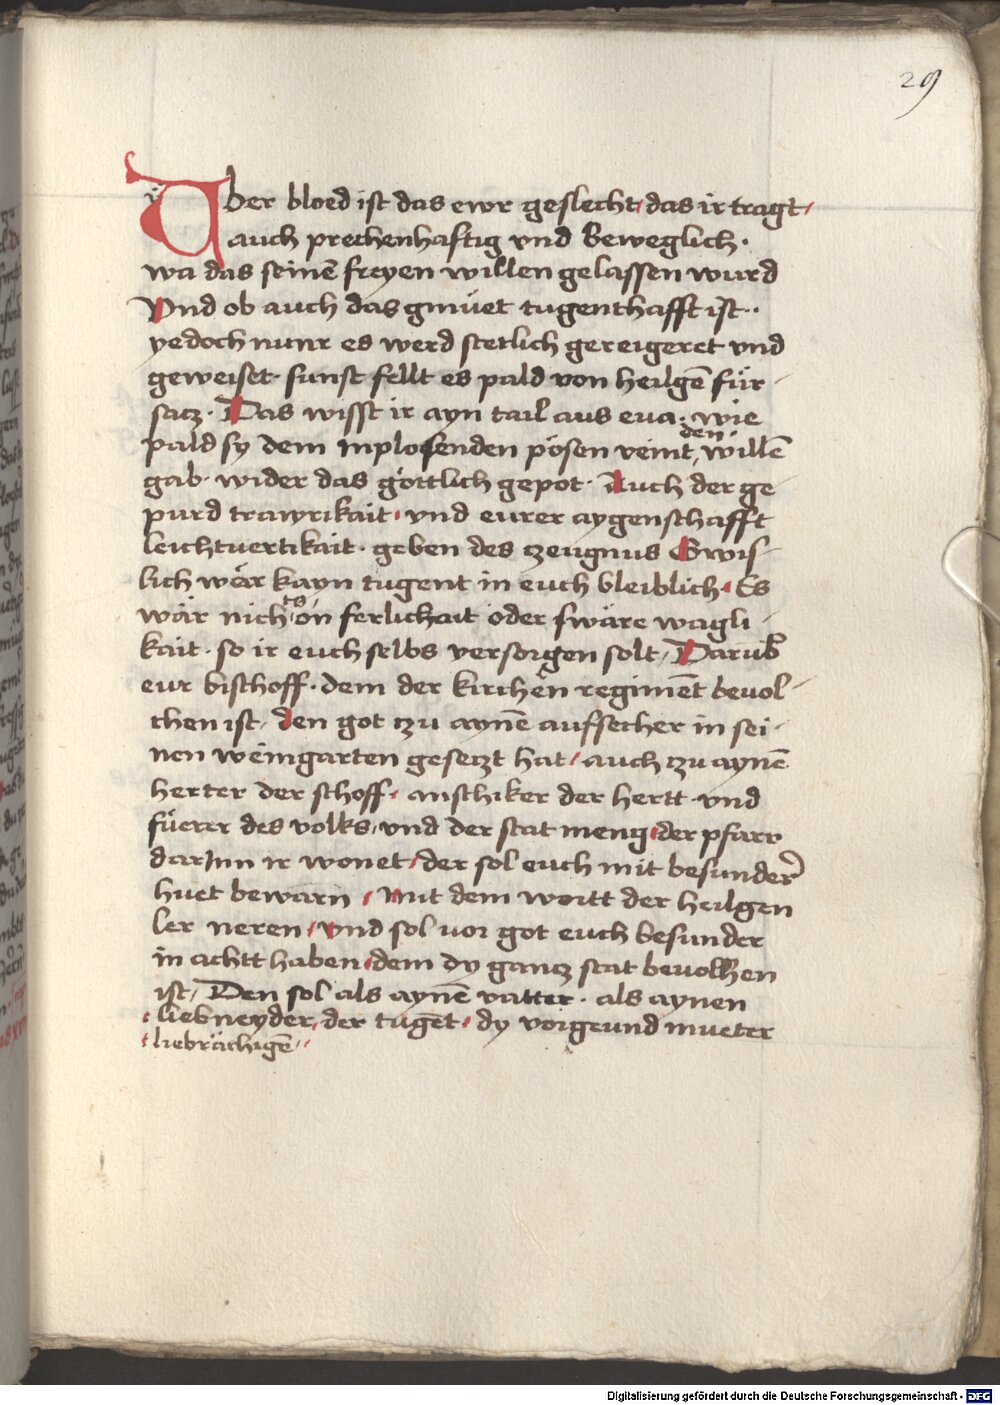 29
Vber bloed ist das ewr geslecht das ir tragt
auch prechenhaftig vnd beweglich.
wa das seinē freyen willen gelassen wurd
Vnd ob auch das gmüet tugenthafft ist..
yedoch nunr es werd stetlich gereigeret vnd
geweiset. sunst fellt es pald von heilgē für-
satz. Das wisst ir ayn tail aus eua. wie
pald sy dem inplosenden pösen veint, den willē
gab. wider das göttlich gepot. Auch der ge
purd trawrikait. vnd eurer aygenschafft
leichtuertikait. geben des czeugnus Gwis-
lich wär kayn tugent in euch bleiblich. Es
wär nichts on ferlichait oder swäre wagli-
kait. so ir euch selbs versorgen solt, Darūb
eur bischoff. dem der kirchen regimēt beuol-
chen ist, den got czu aynē auffsecher in sei-
nen weingarten gesetzt hat, auch czu aynē
herter der schoff. anschiker der hertt vnd
füerer des volks, vnd der stat meng der pfarr
darInn ir wonet, der sol euch mit besunder
huet bewarn, mit dem wortt der heilgen
ler neren, vnd sol vor got euch besunder
in achtt haben dem dy gancz stat beuolhen
ist, Den sol als aynē vatter. als aynen
liebneyder, der tugēt. dy vorgeund mueter
liebrächigē.
Digitalisierung gefördert durch die Deutsche Forschungsgemeinschaft - DFG